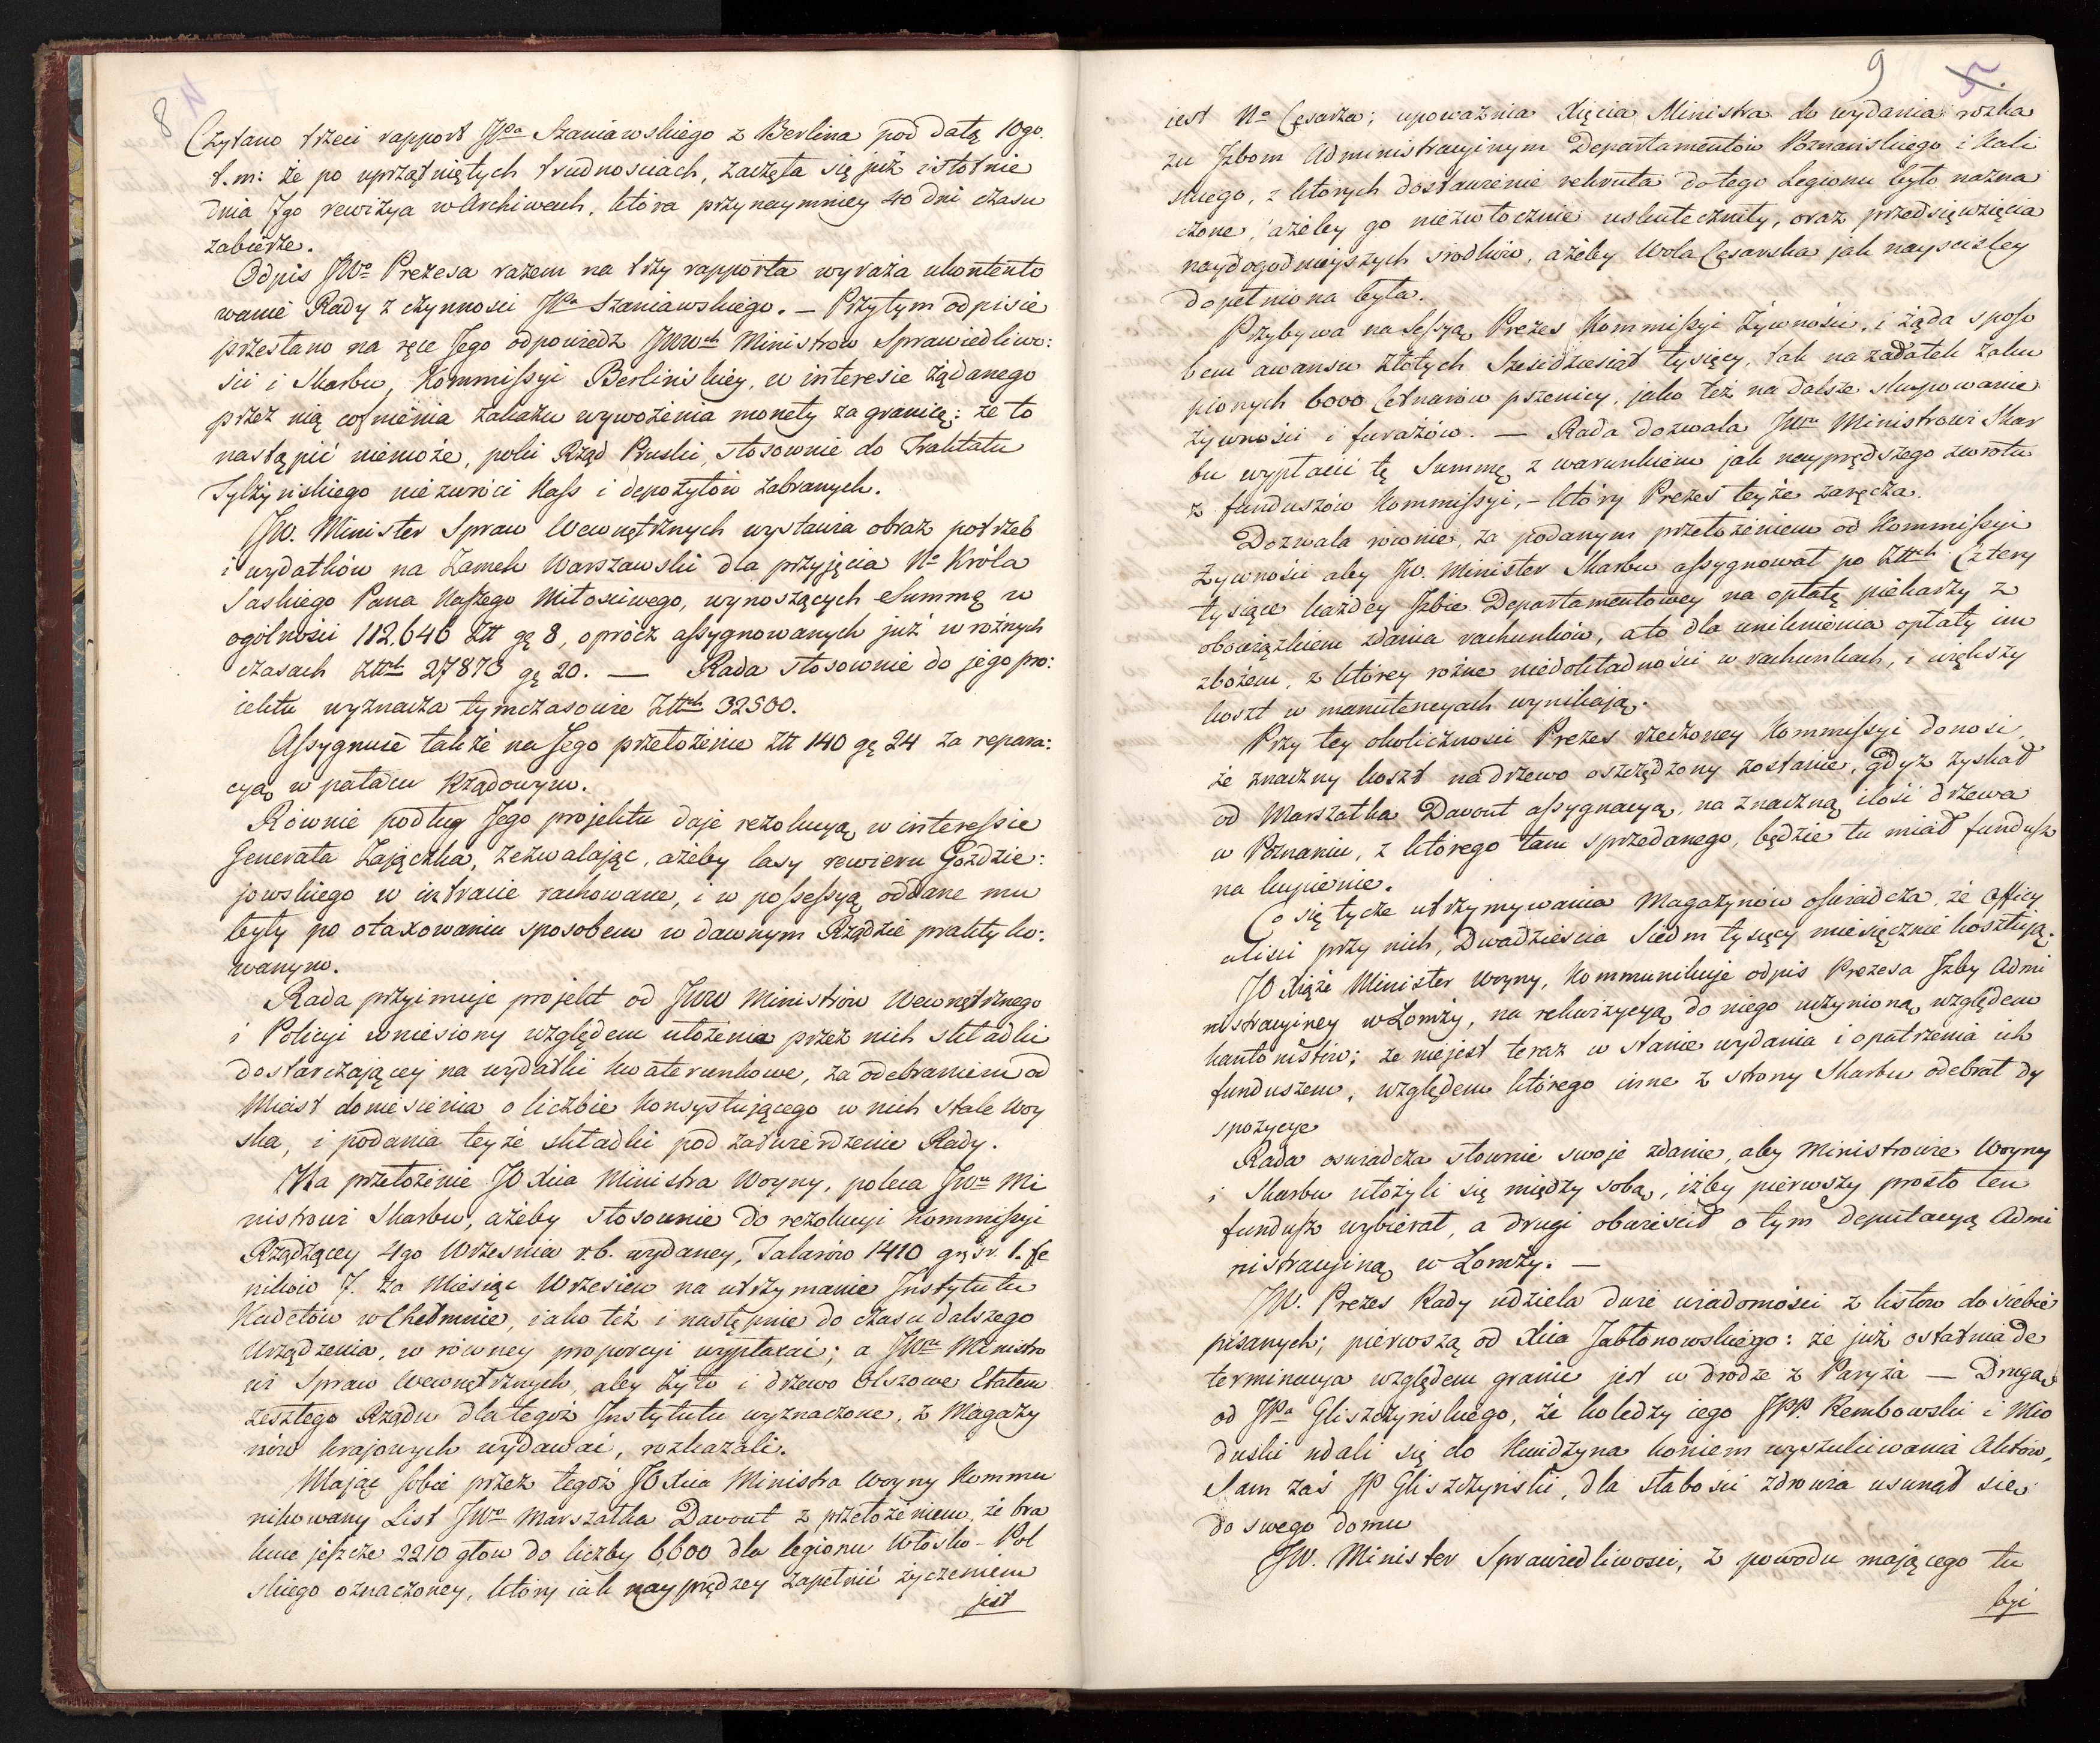 8 4
Czytano trzeci rapport JPa Szaniawskiego z Berlina pod datą 10go.
t.m: że po uprzątniętych trudnosciach, zaczęła się już istotnie
dnia 7go rewizya w Archiwach, która przynaymniey 40 dni czasu
zabierze.
Odpis JWo Prezesa razem na trzy rapporta wyraża ukontento
wanie Rady z czynnosci JPa Szaniawskiego. — Przytym odpisie
przesłano na ręce Jego odpowiedz JWWch Ministrow Sprawiedliwo:
sci i Skarbu, Kommissyi Berlińskiey, w interesie żądanego
przez nią cofnienia zakazu wywożenia monety za granicę: że to
nastąpić niemoże, poki Rząd Pruski, stosownie do Traktatu
Tylżyńskiego niezwróci Kass i depozytów zabranych.
JW. Minister Spraw Wewnętrznych wystawia obraz potrzeb
i wydatków na Zamek Warszawski dla przyjęcia No Króla
Saskiego Pana Naszego Miłosciwego, wynoszących Summę w
ogólności 112.646 Złł gę 8, oprócz assygnowanych już w rożnych
czasach Złłch 27873 gę 20. — Rada stosownie do jego pro:
iektu wyznacza tymczasowie Złłch 32500.
Assygnuie także na Jego przełożenie Złł 140 gę 24 za repara:
cyą w pałacu Rządowym.
Równie podług Jego projektu daje rezolucyą w interessie
Generała Zajączka, zezwalając, ażeby lasy rewieru Gozdzie:
jowskiego w intracie rachowane, i w possessyą oddane mu
były po otaxowaniu sposobem w dawnym Rządzie praktyko:
wanym.
Rada przyimuje projekt od JWW Ministrów Wewnętrznego
i Policyi wniesiony względem ułożenia przez nich składki
dostarczającey na wydatki kwaterunkowe, za odebraniem od
Miast doniesienia o liczbie konsystującego w nich stale Woy
ska, i podania teyże składki pod zatwierdzenie Rady.
Na przełożenie JO Xcia Ministra Woyny, poleca JWu Mi
nistrowi Skarbu, ażeby stosownie do rezolucyi Kommissyi
Rządzącey 4go Wrzesnia r.b. wydaney, Talarów 1410 gęsr. 1. fe
nikow 7. za Miesiąc Wrzesień na utrzymanie Instytutu
Kadetów w Chełmnie, iako też i następnie do czasu dalszego
Urządzenia, w równey proporcyi wypłacać; a JWu Ministro
wi Spraw Wewnętrznych, aby żyto i drzewo Olszowe Etatem
zeszłego Rządu dla tegoż Instytutu wyznaczone, z Magazy
nów krajowych wydawać, rozkazali.
Mając sobie przez tegoż JO Xcia Ministra Woyny Kommu
nikowany List JWo Marszałka Davout z przełożeniem, że bra
kuie jeszcze 2210 głow do liczby 6,600 dla legionu Włosko-Pol
skiego oznaczoney, który iak nayprędzey zapełnić życzeniem
jest
9 5.
iest No Cesarza; upoważnia Xięcia Ministra do wydania rozka
zu Izbom Administracyinym Departamentów Poznańskiego i Kali
skiego, z których dostawienie rekruta do tego Legionu było nazna
czone, ażeby go niezwłocznie uskuteczniły, oraz przedsięwzięcia
naydogodniejszych srodków, ażeby Wola Cesarska jak nayscisley
dopełniona była.
Przybywa na sessyą Prezes Kommissyi Żywności, i żąda sposo
bem awansu złotych Szesćdziesiąt tysięcy, tak na zadatek zaku
pionych 6000 Cetnarów pszenicy, jako też na dalsze skupowanie
żywności i furażów. — Rada dozwala JWu Ministrowi Skar
bu wypłacić tę Summę z warunkiem jak nayprędszego zwrotu
z funduszów Kommissyi, – który Prezes teyże zaręcza.
Dozwala równie, za podanym przełożeniem od Kommissyi
Żywności aby JW. Minister Skarbu assygnował po Złłch Cztery
tysiące każdey Izbie Departamentowey na opłatę piekarzy z
obowiązkiem zdania rachunków, a to dla uniknienia opłaty im
zbożem, z którey rożne niedokładności w rachunkach, i większy
koszt w manutencyach wynikają.
Przy tey okoliczności Prezes rzeczoney Kommissyi donosi,
że znaczny koszt na drzewo oszczędzony zostanie, gdyż zyskał
od Marszałka Davout assygnacyą, na znaczną ilość drzewa
w Poznaniu, z którego tam sprzedanego, będzie tu miał fundusz
na kupienie.
Co się tycze utrzymywania Magazynów oswiadcza, że Officy
alisci przy nich, Dwadziescia Siedm tysięcy miesięcznie kosztują.
JO Xiąże Minister Woyny, kommunikuje odpis Prezesa Izby Admi
nistracyiney w Łomży, na rekwizycyą do niego uczynioną względem
kantonistów; że niejest teraz w stanie wydania i opatrzenia ich
funduszem, względem którego inne z strony Skarbu odebrał dy
spozycye
Rada oswiadcza słownie swoje zdanie, aby Ministrowie Woyny
i Skarbu ułożyli się między sobą, iżby pierwszy prosto ten
fundusz wybierał, a drugi obwieścił o tym deputacyą Admi
nistracyiną w Łomży. —
JW. Prezes Rady udziela dwie wiadomości z listow do siebie
pisanych; pierwszą od Xcia Jabłonowskiego: że już ostatnia de
terminacya względem granic jest w drodze z Paryża — Druga,
od JPa Gliszczyńskiego, że koledzy iego JPP. Rembowski i Mio
duski udali się do Kwidzyna koniem wyszukiwania Aktów,
Sam zaś JP Gliszczyński, dla słabości zdrowia usunął się
do swego domu
JW. Minister Sprawiedliwosci, z powodu mającego tu
być